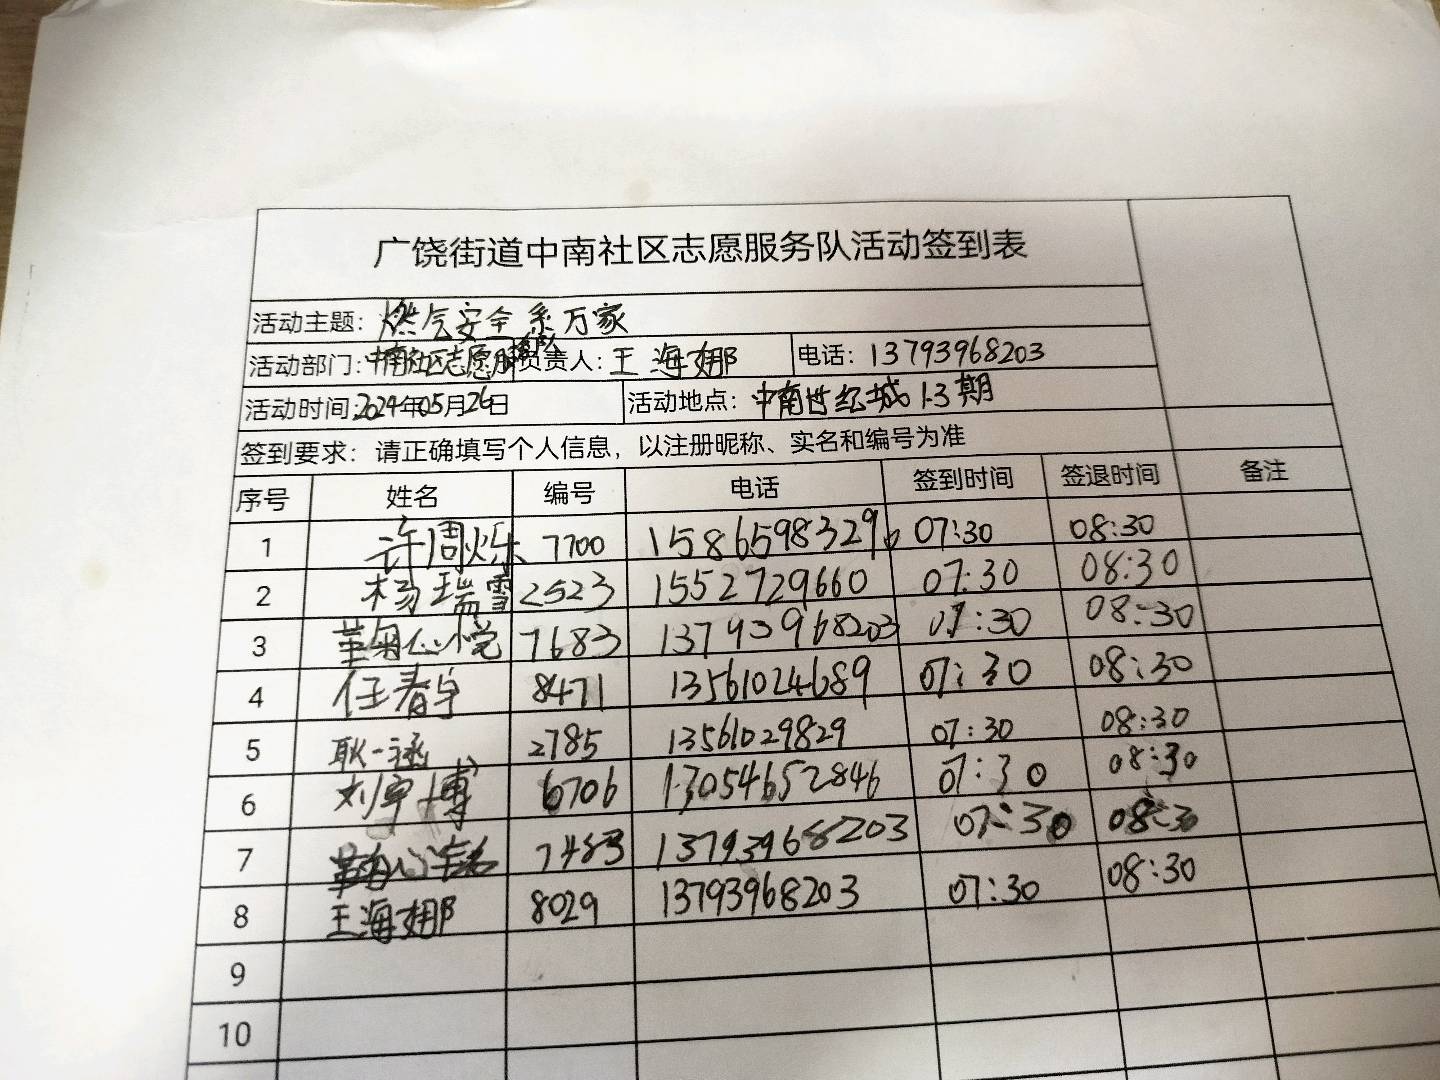 广饶街道中南社区志愿服务队活动签到表
活动主题：燃气安全系万家
活动部门：中南社区志愿服务队 负责人：王海娜 电话：13793968203
活动时间：2024年05月26日 活动地点：中南世纪城1-3期
签到要求：请正确填写个人信息，以注册昵称、实名和编号为准
序号 姓名 编号 电话 签到时间 签退时间 备注
1 许周烁 7700 15865983296 07:30 08:30
2 杨瑞雪 2523 15527729660 07:30 08:30
3 7683 13793968203 07:30 08:30
4 任春卓 8471 13561024689 07:30 08:30
5 耿一涵 2785 13561029829 07:30 08:30
6 刘卓博 6706 13054652846 07:30 08:30
7 7483 13793968203 07:30 08:30
8 王海娜 8029 13793968203 07:30 08:30
9
10